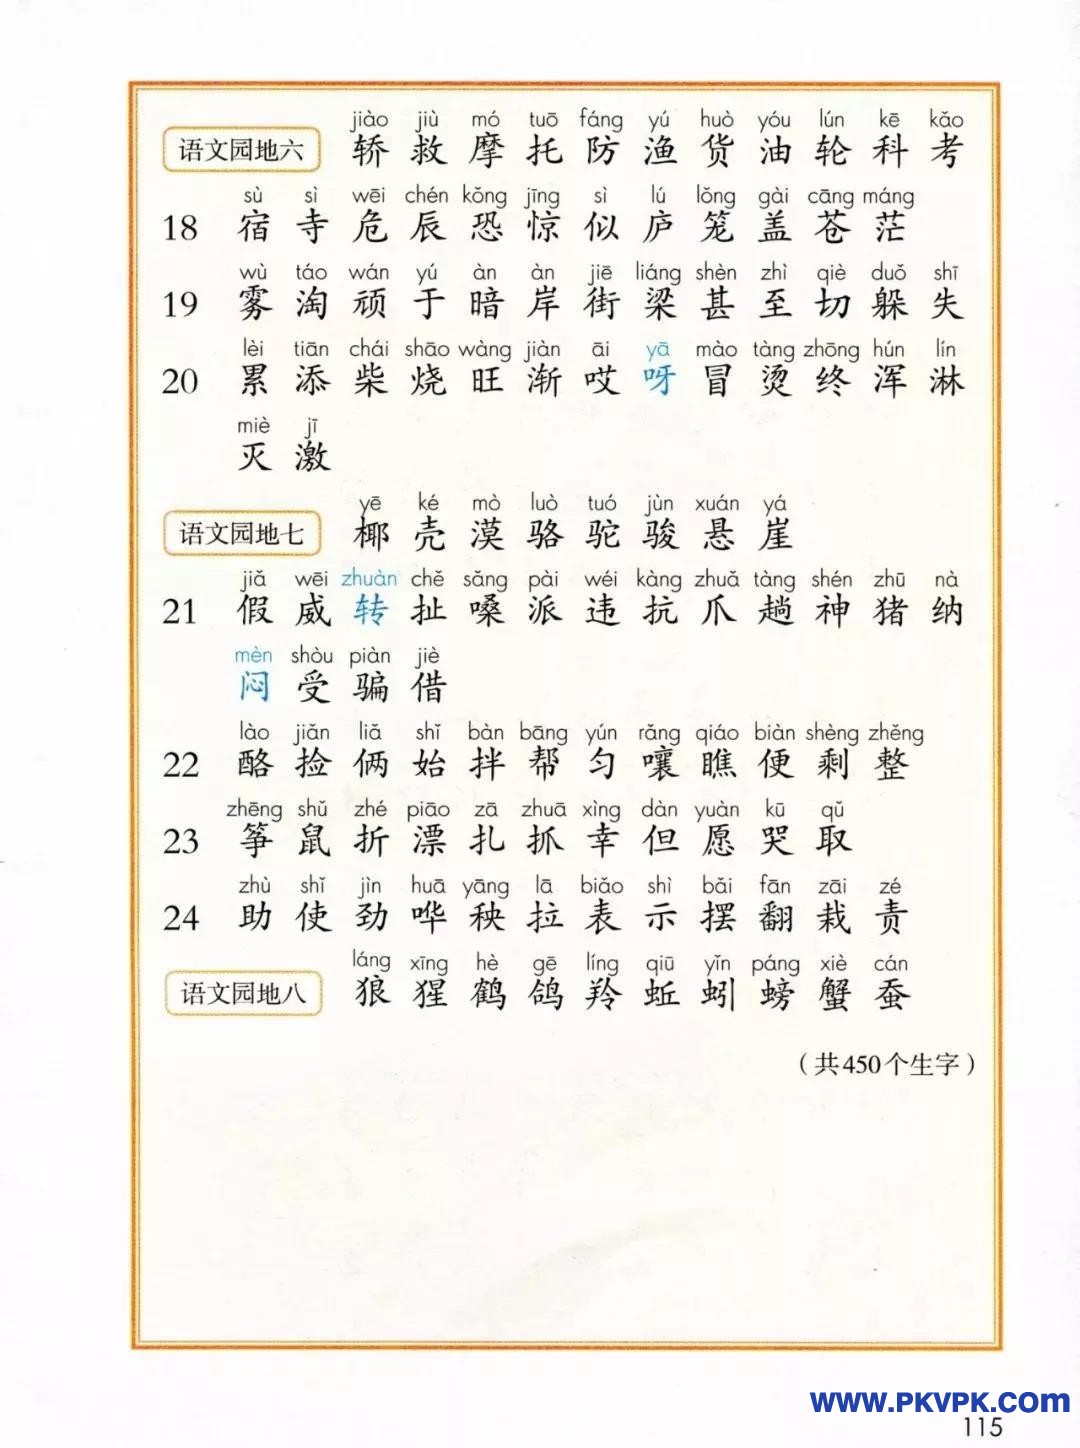 jiào jiù mó tuō fáng yú huò yóu lún kē kǎo
语文园地六 轿 救 摩 托 防 渔 货 油 轮 科 考
sù sì wēi chén kǒng jīng sì lú lǒng gài cāng máng
18 宿 寺 危 辰 恐 惊 似 庐 笼 盖 苍 茫
wù táo wán yú àn àn jiē liáng shèn zhì qiè duǒ shī
19 雾 淘 顽 于 暗 岸 街 梁 甚 至 切 躲 失
lèi tiān chái shāo wàng jiàn āi yā mào tàng zhōng hún lín
20 累 添 柴 烧 旺 渐 哎 呀 冒 烫 终 浑 淋
miè jī
灭 激
yē ké mò luò tuó jùn xuán yá
语文园地七 椰 壳 漠 骆 驼 骏 悬 崖
jiǎ wēi zhuàn chě sǎng pài wéi kàng zhuǎ tàng shén zhū nà
21 假 威 转 扯 嗓 派 违 抗 爪 趟 神 猪 纳
mèn shòu piàn jiè
闷 受 骗 借
lào jiǎn liǎ shǐ bàn bāng yún rǎng qiáo biàn shèng zhěng
22 酪 捡 俩 始 拌 帮 匀 嚷 瞧 便 剩 整
zhēng shǔ zhé piāo zā zhuā xìng dàn yuàn kū qǔ
23 筝 鼠 折 漂 扎 抓 幸 但 愿 哭 取
zhù shǐ jìn huā yāng lā biǎo shì bǎi fān zāi zé
24 助 使 劲 哗 秧 拉 表 示 摆 翻 栽 责
láng xīng hè gē líng qiū yǐn páng xiè cán
语文园地八 狼 猩 鹤 鸽 羚 蚯 蚓 螃 蟹 蚕
（共450个生字）
www.PKVPK.com
115